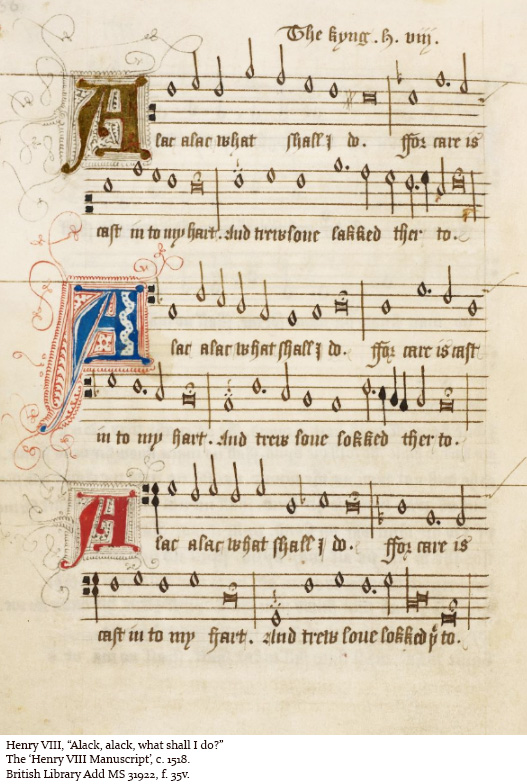 The kyng . h . viij .
A lac alac what shall j do . ffor care is
cast in to my hart . And trew loue lakked ther to .
A lac alac what shall j do . ffor care is cast
in to my hart . And trew loue lokked ther to .
A lac alac what shall j do . ffor care is
cast in to my hart . And trew loue lokked to .
Henry VIII, “Alack, alack, what shall I do?”
The ‘Henry VIII Manuscript’, c. 1518.
British Library Add MS 31922, f. 35v.